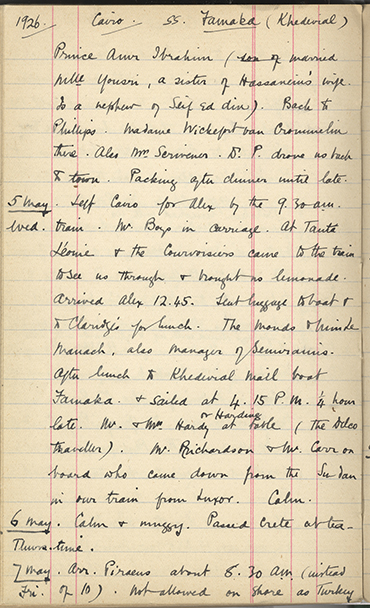 1926. Cairo. SS. Famaka (Khedivial)
Prince Amr Ibrahim (son of married
Mlle Yousri, a sister of Hassanein's wife.
Is a nephew of Seif Ed din). Back to
Phillips. Madame Wickefort van Crommelin
there. Also Mrs Scrivener. D. P. drove us back
to town. Packing after dinner until late.
5 May. Left Cairo for Alex by the 9.30 am.
Wed. train. Mr Boys in carriage. At Tanta
Léonie & the Courvoisiers came to the train
to see us through & brought us lemonade.
Arrived Alex 12.45. Sent luggage to boat &
to Claridge's for lunch. The
Manach, also manager of Semiramis.
After lunch to Khedivial mail boat
Famaka. & sailed at 4.15 P.M. ¼ hour
or Harding
late. Mr. & Mrs Hardy at table (the Delco
traveller). Mr. Richardson & Mr. Carr on
board who came down from the Sudan
in our train from Luxor. Calm.
6 May. Calm & muggy. Passed Crete at tea-
Thurs. time.
7 May. Arr. Piraeus about 8.30 am. (instead
Fri. of 10). Not allowed on shore as Turkey